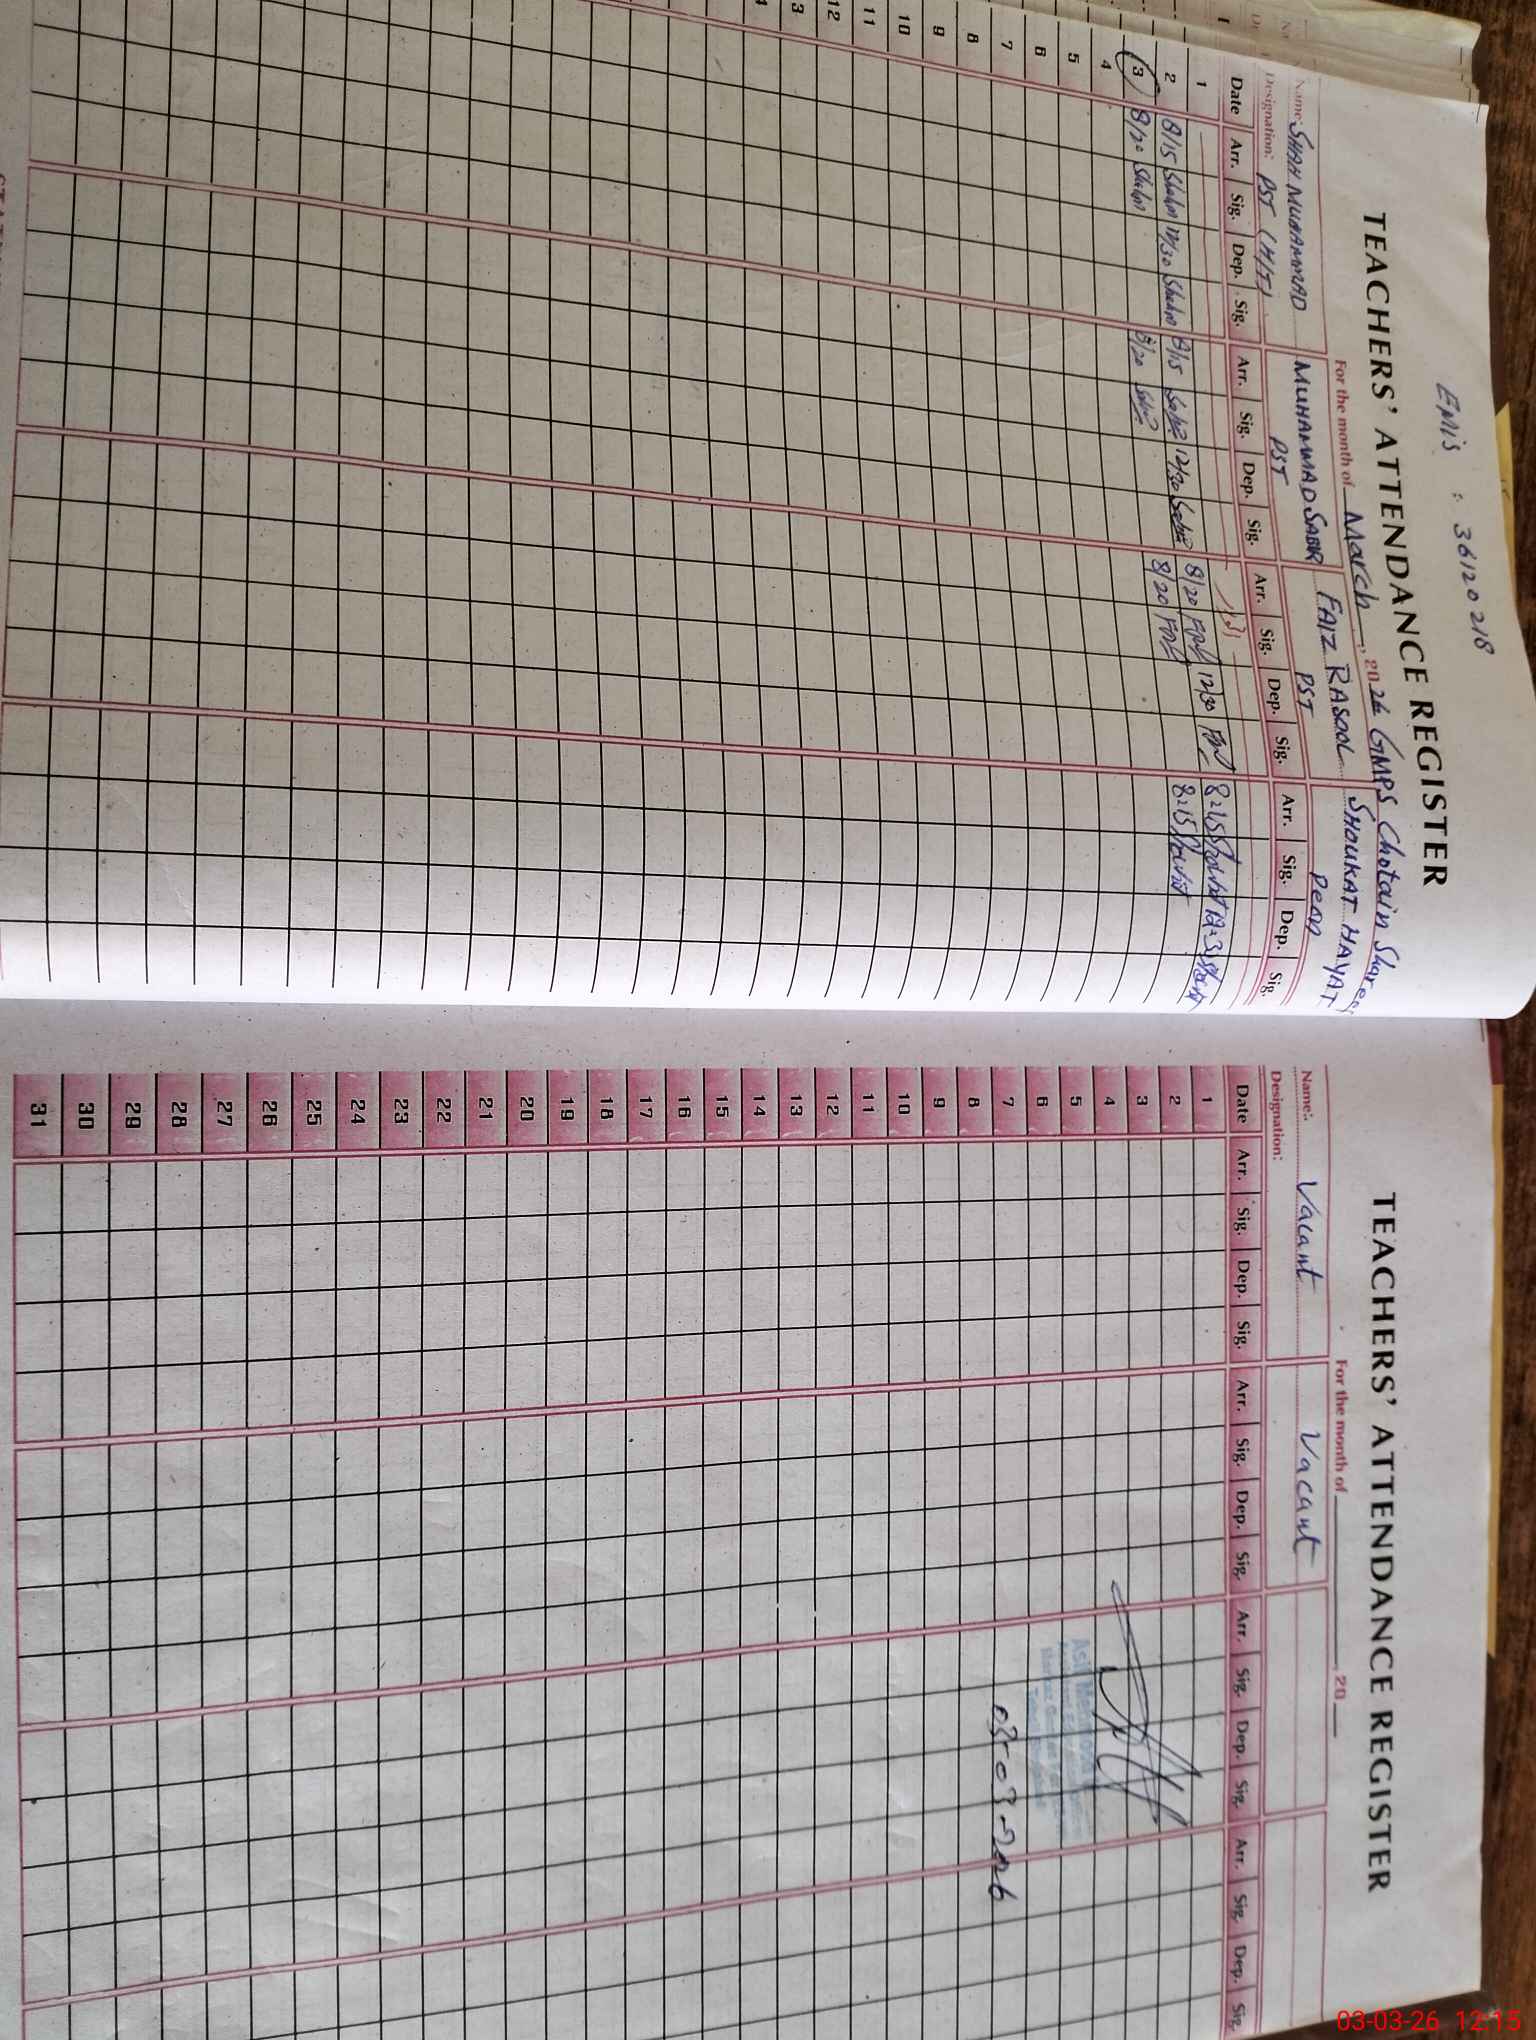 EMIS : 36120218
TEACHERS' ATTENDANCE REGISTER
For the month of March, 2026 GMPS Chotain Shareef
Name: SHAH MUHAMMAD MUHAMMAD SABIR FAIZ RASOOL SHOUKAT HAYAT
Designation: PST (H/T) PST PST Peon
Date Arr. Sig. Dep. Sig. Arr. Sig. Dep. Sig. Arr. Sig. Dep. Sig. Arr. Sig. Dep. Sig.
1
2 8/15 12/30 8/15 Sabir 12/30 Sabir 8/20 12/30 8:15 Shoukat
3 8/20 8/20 Sabir 8/20 8:15 Shoukat
4
5
6
7
8
9
10
11
12
TEACHERS' ATTENDANCE REGISTER
For the month of , 20
Name: Vacant Vacant
Designation:
Date Arr. Sig. Dep. Sig. Arr. Sig. Dep. Sig. Arr. Sig. Dep. Sig. Arr. Sig. Dep. Sig.
1
2
3
4
5
6
7 03-03-2026
8
9
10
11
12
13
14
15
16
17
18
19
20
21
22
23
24
25
26
27
28
29
30
31
03-03-26 12:15